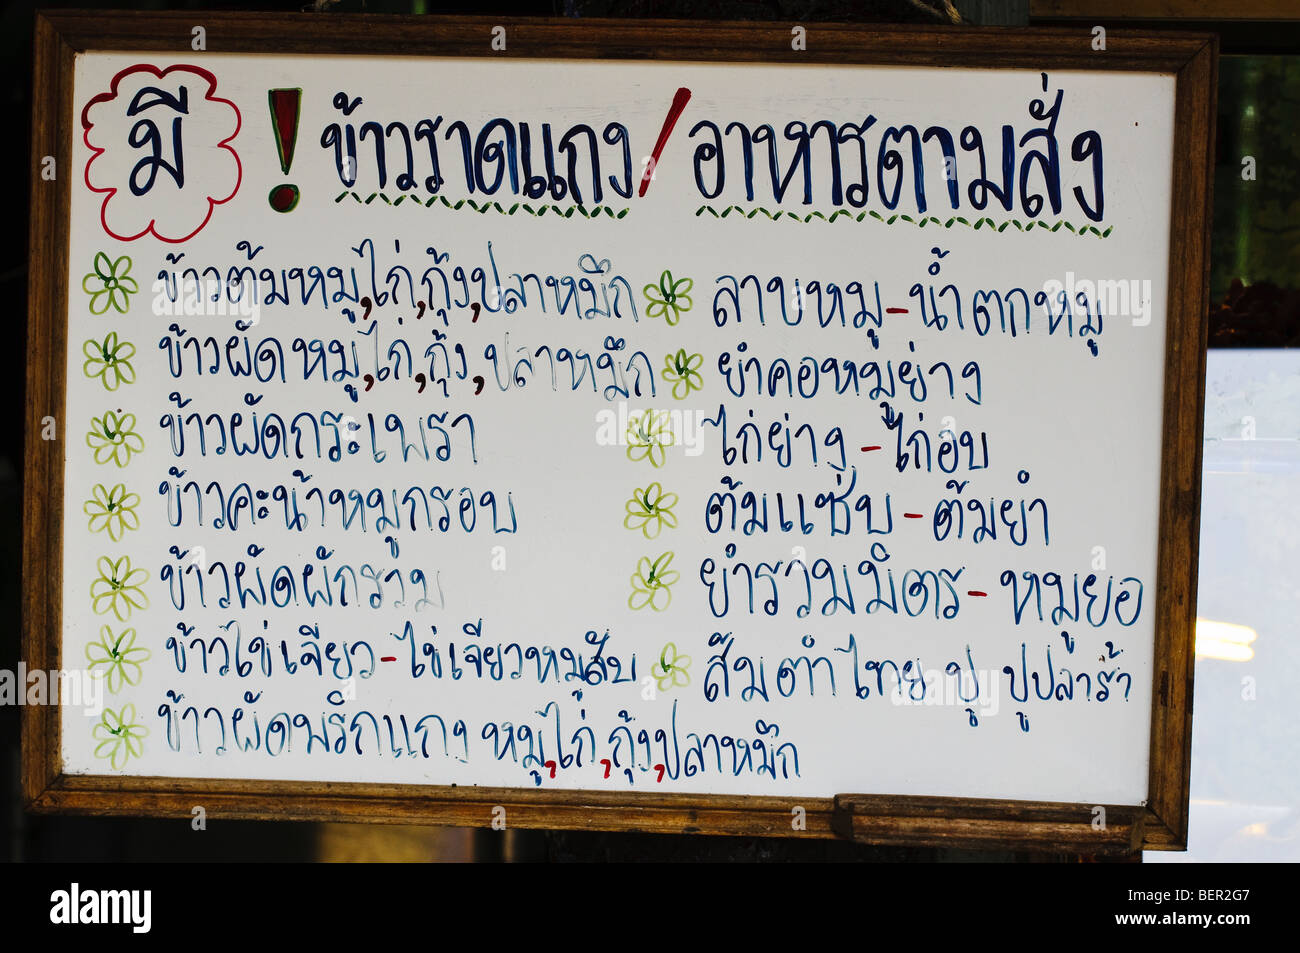 มี ! ข้าวราดแกง/อาหารตามสั่ง
ข้าวต้มหมู,ไก่,กุ้ง,ปลาหมึก
ข้าวผัดหมู,ไก่,กุ้ง,ปลาหมึก
ข้าวผัดกระเพรา
ข้าวคะน้าหมูกรอบ
ข้าวผัดผักรวม
ข้าวไข่เจียว-ไข่เจียวหมูสับ
ข้าวผัดพริกแกง หมู,ไก่,กุ้ง,ปลาหมึก
ลาบหมู-น้ำตกหมู
ยำคอหมูย่าง
ไก่ย่าง-ไก่อบ
ต้มแซ่บ-ต้มยำ
ยำรวมมิตร-หมูยอ
ส้มตำไทย ปู ปูปลาร้า
alamy
Image ID: BER2G7
www.alamy.com